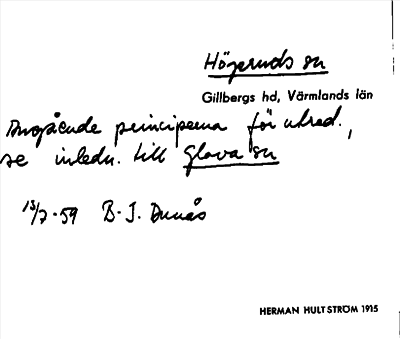 Högeruds sn
Gillbergs hd, Värmlands län
Angående principerna för utred.,
se inledn. till Glava sn
13/7-59 B-J. Dunås
HERMAN HULTSTRÖM 1915